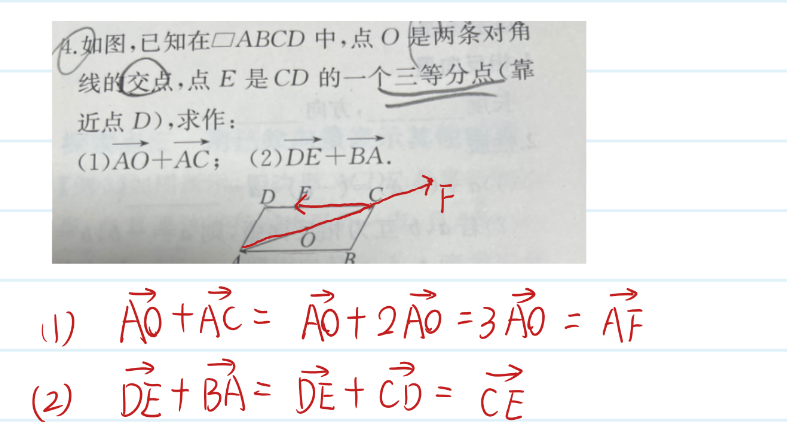 4.如图,已知在▱ABCD 中,点 O 是两条对角
线的交点,点 E 是CD 的一个三等分点(靠
近点 D),求作:
(1)$\overrightarrow{AO}+\overrightarrow{AC}$; (2)$\overrightarrow{DE}+\overrightarrow{BA}$.
D E C F
A O B
(1) $\overrightarrow{AO}+\overrightarrow{AC}=\overrightarrow{AO}+2\overrightarrow{AO}=3\overrightarrow{AO}=\overrightarrow{AF}$
(2) $\overrightarrow{DE}+\overrightarrow{BA}=\overrightarrow{DE}+\overrightarrow{CD}=\overrightarrow{CE}$